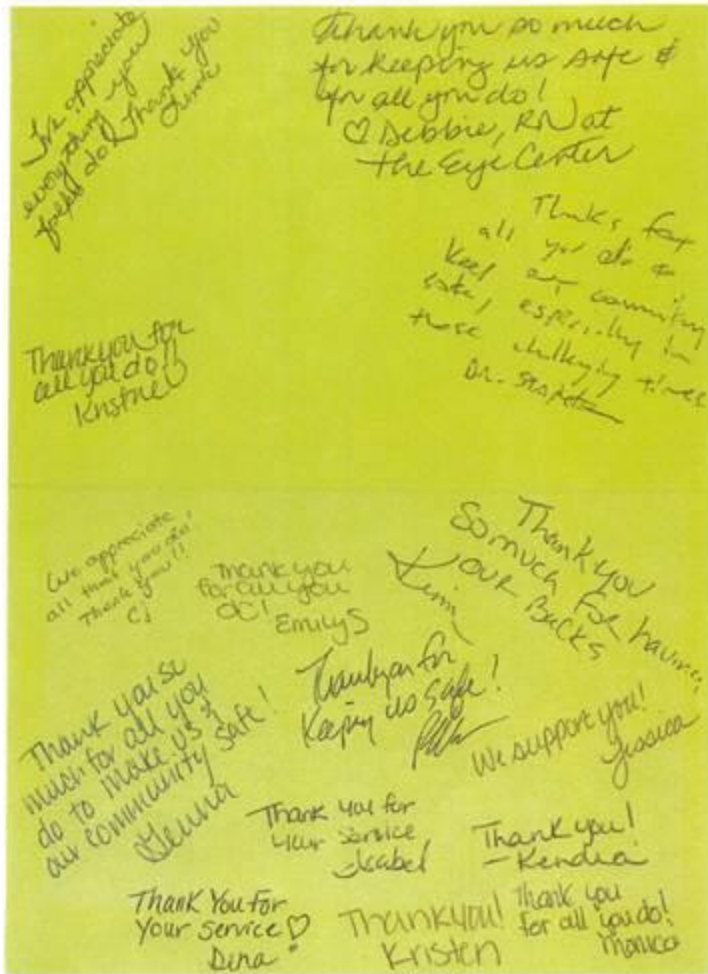 We appreciate
everything you
do! Thank you
Thank you so much
for keeping us safe &
for all you do!
♡ Debbie, RN at
the Eye Center
Thanks for
all you do to
keep our community
safe, especially in
these challenging times
Dr.
Thank you for
all you do!!
Kristine
We appreciate
all that you do!
Thank you!!
CJ
Thank you
for all you
do!
Emily S
Thank you
so much for having
your Backs
Kim
Thank you so
much for all you
do to make us &
our community safe!
Jenna
Thank you for
Keeping us safe!
We support you!
Jessica
Thank you for
your service
Isabel
Thank you!
- Kendra
Thank You For
Your service ♡
Dena
Thank you!
Kristen
Thank you
for all you do!
Monica